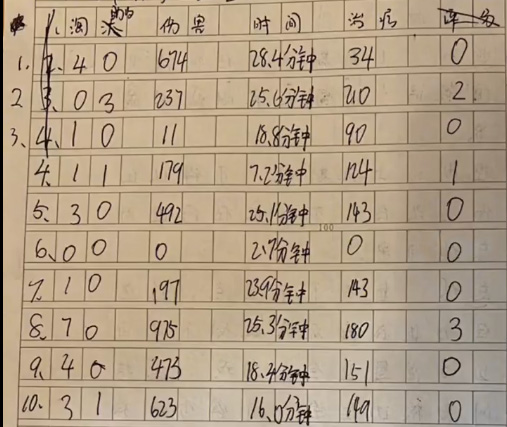 淘汰 助攻 伤害 时间 治疗
1. 4 0 674 28.4分钟 34 0
2 0 3 237 25.6分钟 210 2
3、 1 0 11 18.8分钟 90 0
4. 1 1 179 7.2分钟 124 1
5. 3 0 492 25.1分钟 143 0
6、 0 0 0 2.7分钟 0 0
7. 1 0 197 23.9分钟 143 0
8. 7 0 975 25.3分钟 180 3
9. 4 0 473 18.4分钟 151 0
10. 3 1 623 16.0分钟 149 0
100